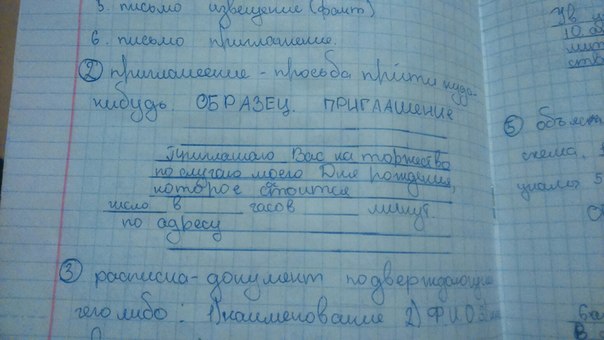 5. письмо извещение (факт)
6. письмо приглашение.
② приглашение - просьба прийти куда-
нибудь. ОБРАЗЕЦ. ПРИГЛАШЕНИЕ
Приглашаю Вас на торжество
по случаю моего Дня рождения,
которое стоится
число в часов минут
по адресу
③ расписка - документ подверждающий
чего либо: 1) наименование 2) Ф.И.О
10
⑤ объясн
схема.